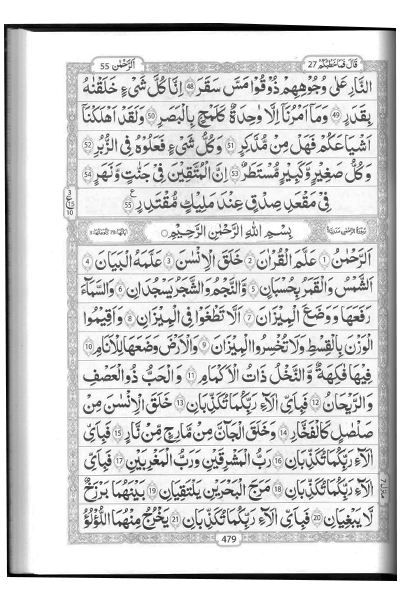 اَلرَّحْمٰن 55
قَالَ فَمَا خَطْبُكُمْ 27
النَّارِ عَلٰى وُجُوْهِهِمْ ذُوْقُوْا مَسَّ سَقَرَ 48 اِنَّا كُلَّ شَىْءٍ خَلَقْنٰهُ
بِقَدَرٍ 49 وَمَآ اَمْرُنَآ اِلَّا وٰحِدَةٌ كَلَمْحٍۢ بِالْبَصَرِ 50 وَلَقَدْ اَهْلَكْنَآ
اَشْيَاعَكُمْ فَهَلْ مِنْ مُّدَّكِرٍ 51 وَكُلُّ شَىْءٍ فَعَلُوْهُ فِى الزُّبُرِ 52
وَكُلُّ صَغِيْرٍ وَّكَبِيْرٍ مُّسْتَطَرٌ 53 اِنَّ الْمُتَّقِيْنَ فِىْ جَنّٰتٍ وَّنَهَرٍ 54
فِىْ مَقْعَدِ صِدْقٍ عِنْدَ مَلِيْكٍ مُّقْتَدِرٍ 55
بِسْمِ اللّٰهِ الرَّحْمٰنِ الرَّحِيْمِ
اَلرَّحْمٰنُ 1 عَلَّمَ الْقُرْاٰنَ 2 خَلَقَ الْاِنْسٰنَ 3 عَلَّمَهُ الْبَيَانَ 4
اَلشَّمْسُ وَالْقَمَرُ بِحُسْبَانٍ 5 وَّالنَّجْمُ وَالشَّجَرُ يَسْجُدَانِ 6 وَالسَّمَآءَ
رَفَعَهَا وَوَضَعَ الْمِيْزَانَ 7 اَلَّا تَطْغَوْا فِى الْمِيْزَانِ 8 وَاَقِيْمُوا
الْوَزْنَ بِالْقِسْطِ وَلَا تُخْسِرُوا الْمِيْزَانَ 9 وَالْاَرْضَ وَضَعَهَا لِلْاَنَامِ 10
فِيْهَا فَاكِهَةٌ وَّالنَّخْلُ ذَاتُ الْاَكْمَامِ 11 وَالْحَبُّ ذُو الْعَصْفِ
وَالرَّيْحَانُ 12 فَبِاَىِّ اٰلَآءِ رَبِّكُمَا تُكَذِّبَانِ 13 خَلَقَ الْاِنْسٰنَ مِنْ
صَلْصٰلٍ كَالْفَخَّارِ 14 وَخَلَقَ الْجَآنَّ مِنْ مَّارِجٍ مِّنْ نَّارٍ 15 فَبِاَىِّ
اٰلَآءِ رَبِّكُمَا تُكَذِّبَانِ 16 رَبُّ الْمَشْرِقَيْنِ وَرَبُّ الْمَغْرِبَيْنِ 17 فَبِاَىِّ
اٰلَآءِ رَبِّكُمَا تُكَذِّبَانِ 18 مَرَجَ الْبَحْرَيْنِ يَلْتَقِيٰنِ 19 بَيْنَهُمَا بَرْزَخٌ
لَّا يَبْغِيٰنِ 20 فَبِاَىِّ اٰلَآءِ رَبِّكُمَا تُكَذِّبَانِ 21 يَخْرُجُ مِنْهُمَا اللُّؤْلُؤُ
479